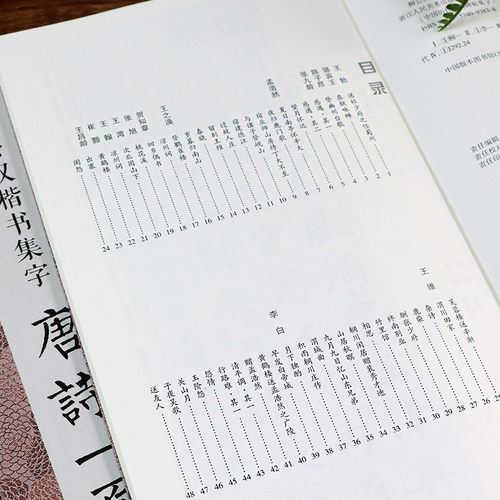 目录
王勃
送杜少府之任蜀州 1
骆宾王
在狱咏蝉 2
陈子昂
登幽州台歌 3
张九龄
感遇·其一
感遇·其二
望月怀远
孟浩然
夏日南亭怀辛大
宿业师山房待丁大不至
与诸子登岘山
宿建德江 11
过故人庄 12
留别王维 13
春晓 14
岁暮归南山 15
王之涣
登鹳雀楼 16
凉州词 17
贺知章
回乡偶书 18
张旭
桃花溪 19
王湾
次北固山下 20
王翰
凉州词 21
崔颢
黄鹤楼 22
王昌龄
出塞 23
闺怨 24
芙蓉楼送辛渐
王维
渭川田家
杂诗
鹿柴
酬张少府
终南别业
竹里馆
相思
辋川闲居赠裴秀才迪
山居秋暝
九月九日忆山东兄弟
渭城曲
积雨辋川庄作
李白
月下独酌
早发白帝城
黄鹤楼送孟浩然之广陵
赠孟浩然
清平调·其一
行路难·其一
怨情
玉阶怨
关山月
子夜吴歌
送友人 48
汉楷书集字
唐詩一百
浙江人民美术
代 Ⅳ. ①J292.24
中国版本图书馆
责任编辑
责任校
责任印